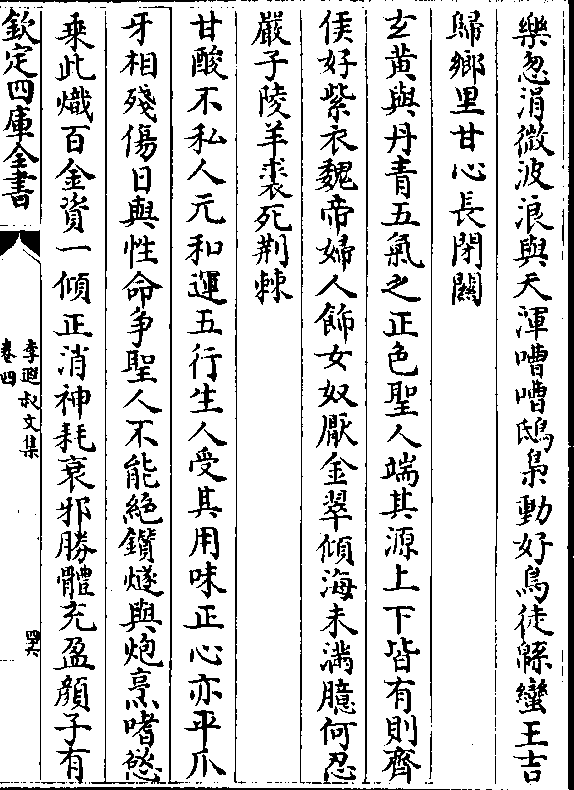 樂忽涓微波浪與天渾嘈嘈鴟梟動好鳥徒緜蠻王吉
歸鄉里甘心長閉關
玄黃與丹青五氣之正色聖人端其源上下皆有則齊
侯好紫衣魏帝婦人飾女奴厭金翠傾海未滿臆何忍
嚴子陵羊裘死荆棘
甘酸不私人元和運五行生人受其用味正心亦平爪
牙相殘傷日與性命爭聖人不能絶鑽燧與炮烹嗜慾
乘此熾百金資一傾正消神耗衰邪勝體充盈顔子有
欽定四庫全書
李遐叔文集
卷四